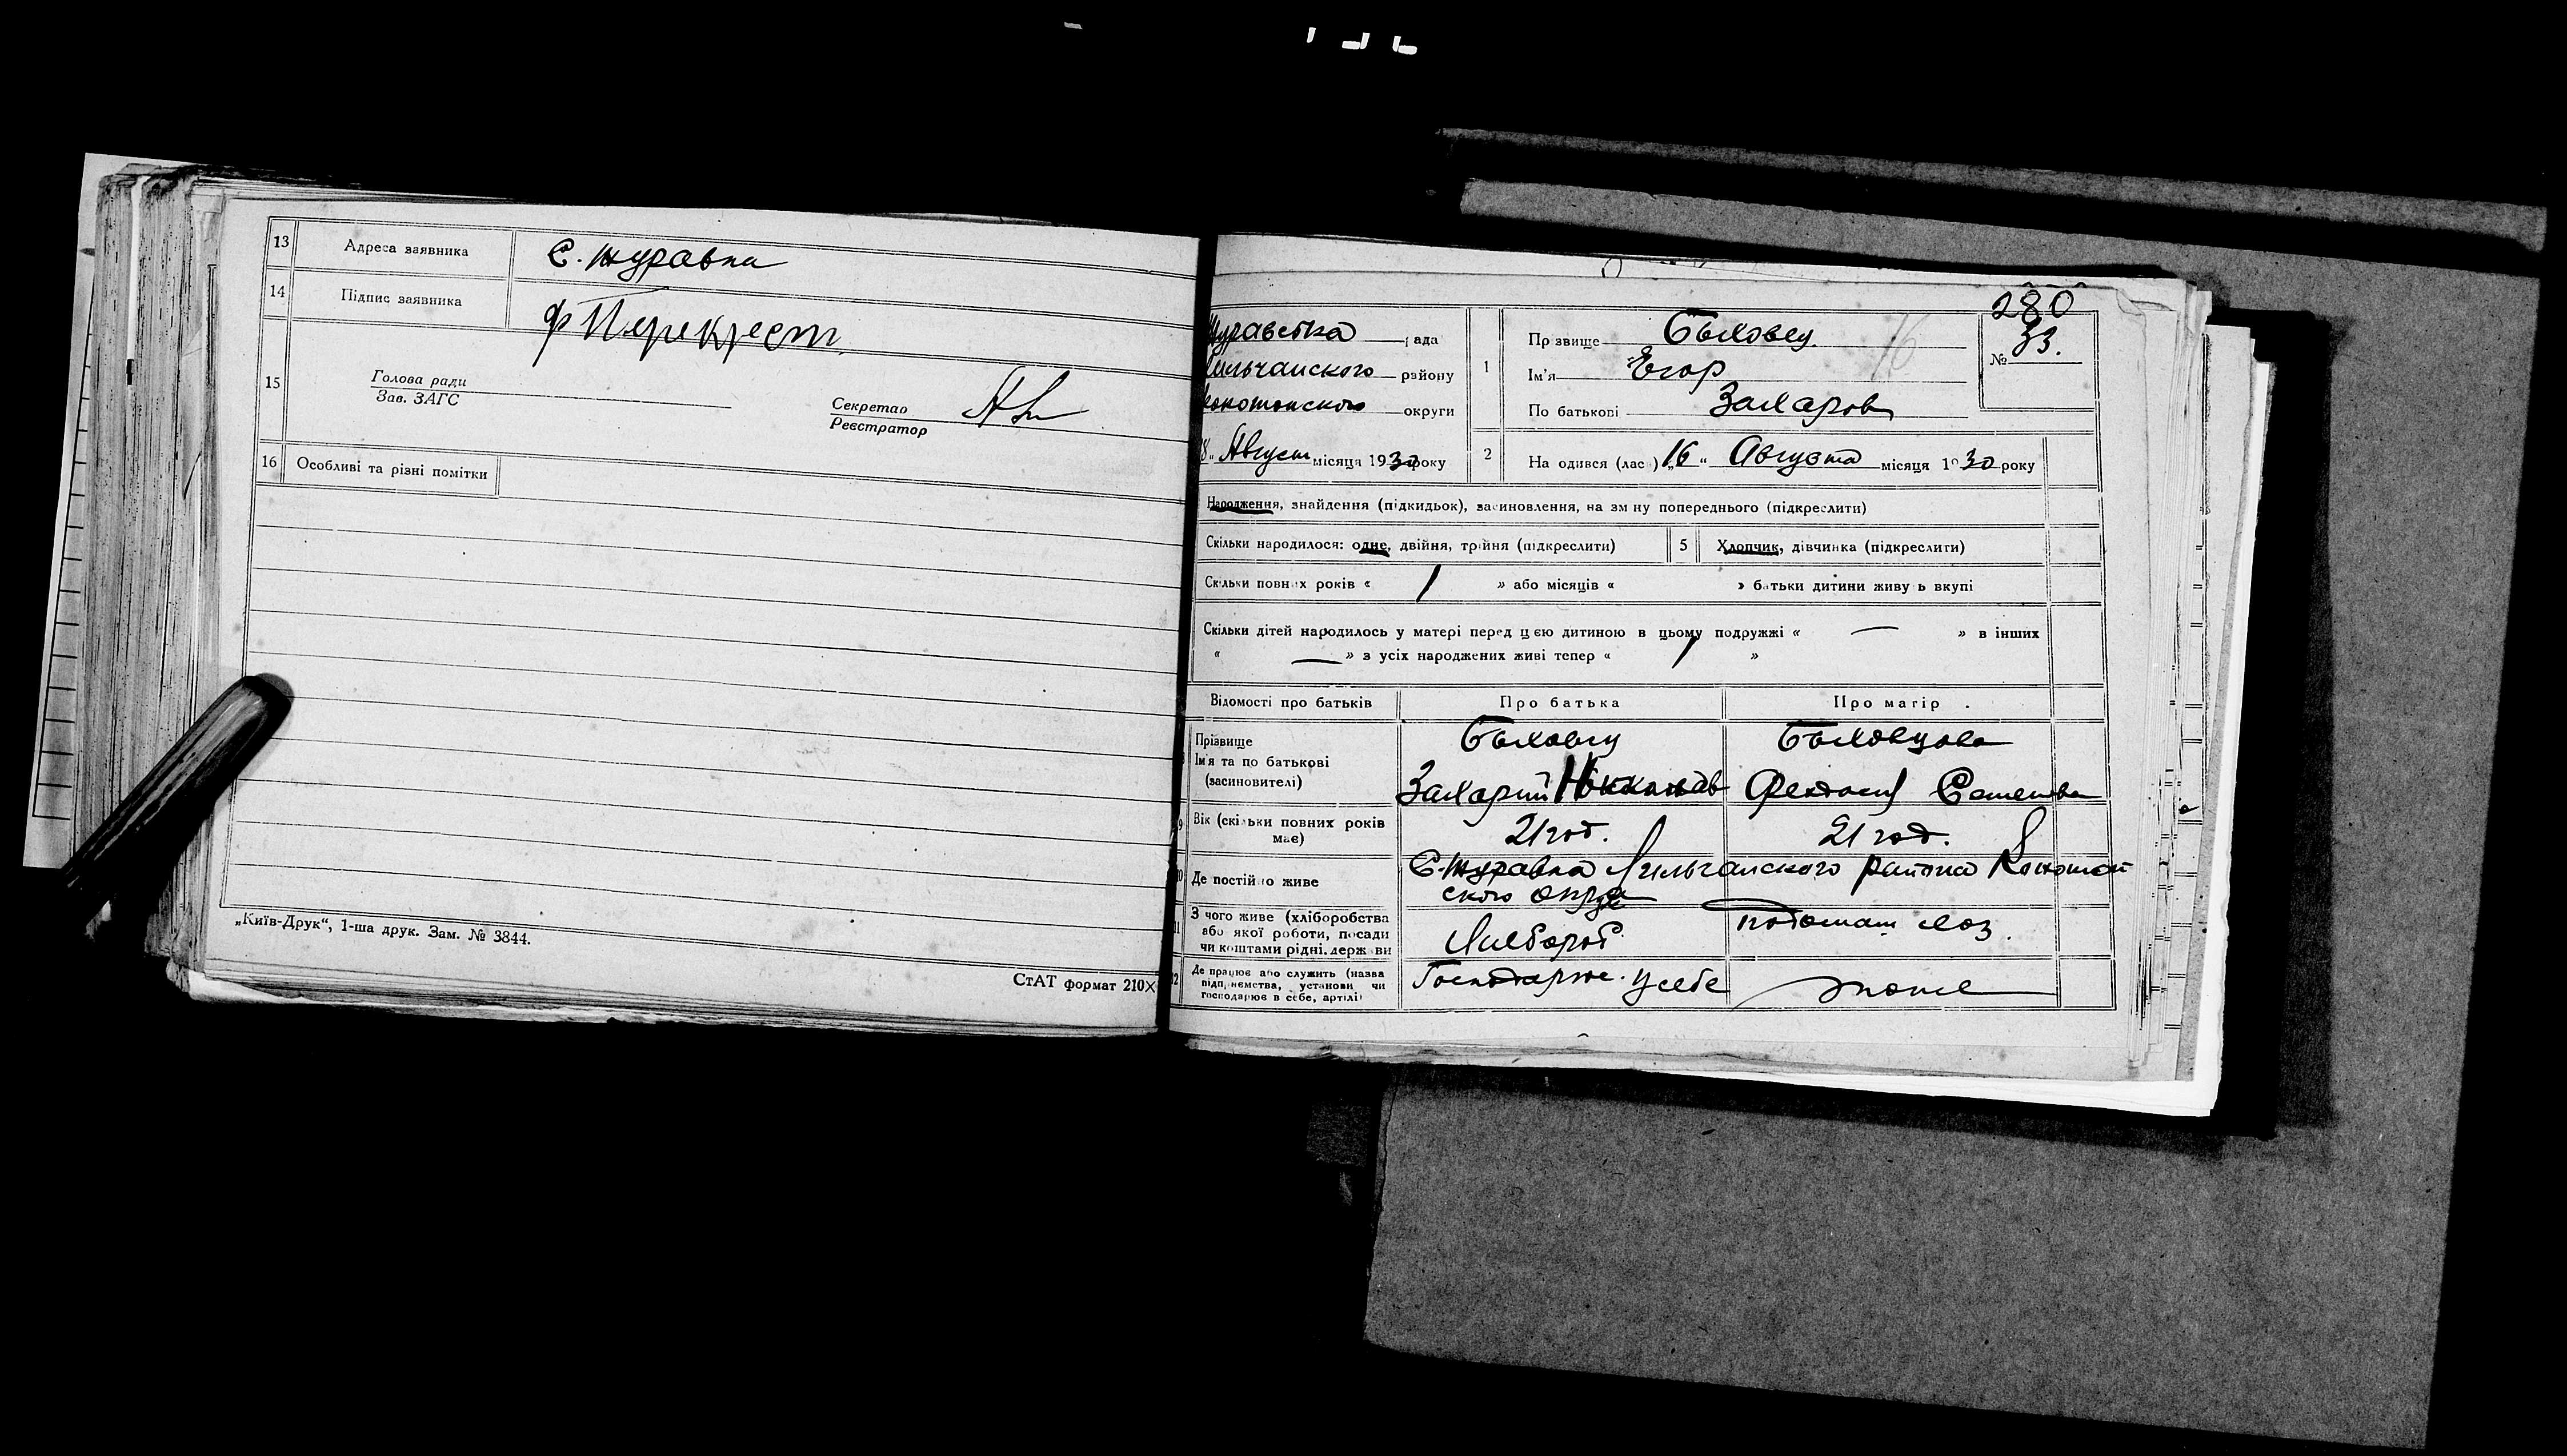 13 Адреса заявника С. Журавка
14 Підпис заявника Ф Перекрест
15 Голова ради
Зав. ЗАГС
Секретар
Реєстратор
16 Особливі та різні помітки
„Київ-Друк“, 1-ша друк. Зам. № 3844.
СтАТ формат 210×
280
рада
району
Конотопского округи
Август місяця 1930 року
1 Прізвище Быховец
Ім'я Егор
По батькові Захаров
№ 33.
16
2 Народився (лась) „16“ Августа місяця 1930 року
Народження, знайдення (підкидьок), засиновлення, на зміну попереднього (підкреслити)
Скільки народилося: одне, двійня, трійня (підкреслити) 5 Хлопчик, дівчинка (підкреслити)
Скільки повних років « / » або місяців « » батьки дитини живуть вкупі
Скільки дітей народилось у матері перед цією дитиною в цьому подружжі « — » в інших
« — » з усіх народжених живі тепер « / »
Відомості про батьків Про батька Про матір
Прізвище Быховец Быховцова
Ім'я та по батькові
(засиновителі) Захарий Феодосия
Вік (скільки повних років
має) 21 год. 21 год.
Де постійно живе С. Журавка района Конотоп
ского округа
З чого живе (хліборобства
або якої роботи, посади
чи коштами рідні, держави Хлебороб
Де працює або служить (назва
підприємства, установи чи
господарює в себе, артілі) Господарює у себе тоже